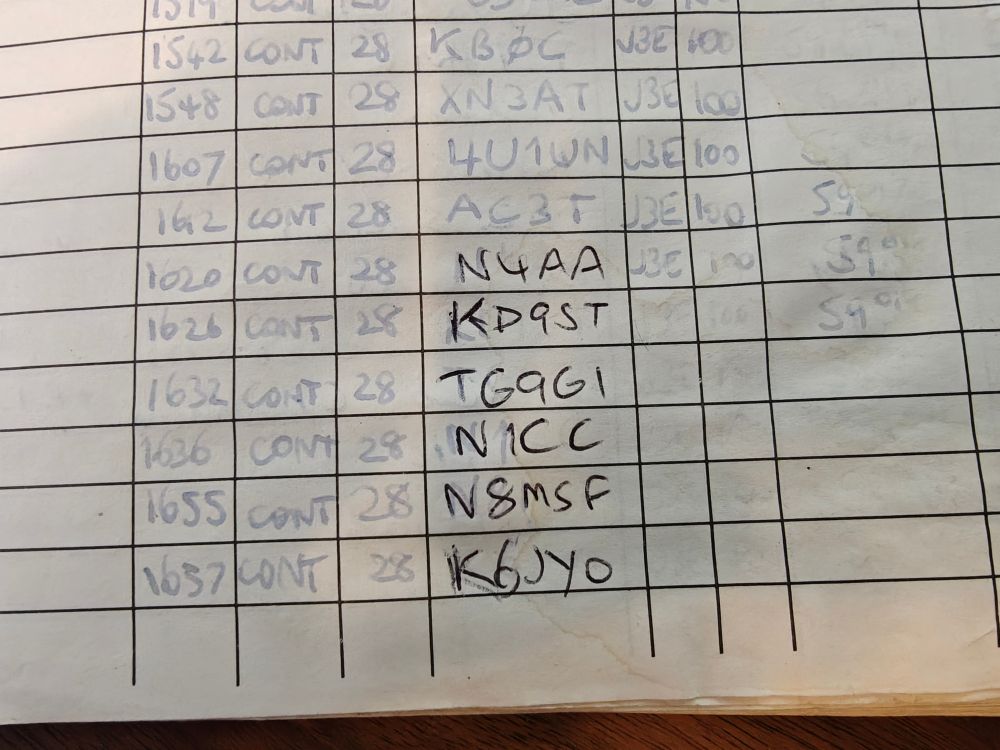 1542 CONT 28 KBØC J3E 100
1548 CONT 28 XN3AT J3E 100
1607 CONT 28 4U1WN J3E 100
1612 CONT 28 AC3T J3E 100 59
1620 CONT 28 N4AA J3E 100 59
1626 CONT 28 KD9ST 100 59
1632 CONT 28 TG9GI
1636 CONT 28 N1CC
1655 CONT 28 N8MSF
1657 CONT 28 K6JYO